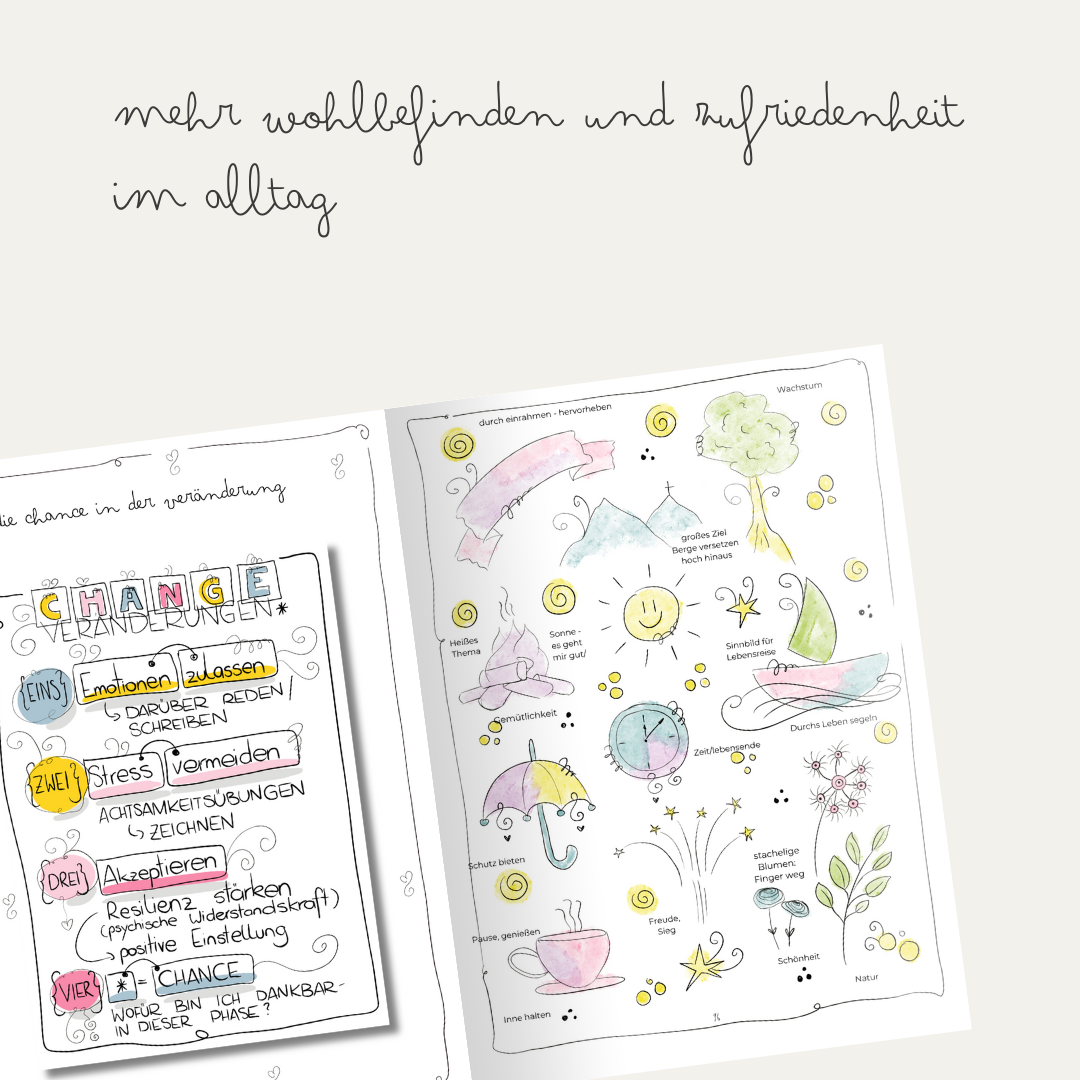 mehr wohlbefinden und zufriedenheit
im alltag
die chance in der veränderung
CHANGE
VERÄNDERUNGEN*
{EINS}
Emotionen zulassen
DARÜBER REDEN/
SCHREIBEN
{ZWEI}
Stress vermeiden
ACHTSAMKEITSÜBUNGEN
ZEICHNEN
{DREI}
Akzeptieren
Resilienz stärken
(psychische Widerstandskraft)
positive Einstellung
{VIER}
* = CHANCE
WOFÜR BIN ICH DANKBAR-
IN DIESER PHASE?
durch einrahmen - hervorheben
Wachstum
großes Ziel
Berge versetzen
hoch hinaus
Heißes
Thema
Sonne -
es geht
mir gut/
Sinnbild für
Lebensreise
Gemütlichkeit
Zeit/lebensende
Durchs Leben segeln
Schutz bieten
stachelige
Blumen:
Finger weg
Freude,
Sieg
Pause, genießen
Schönheit
Natur
Inne halten